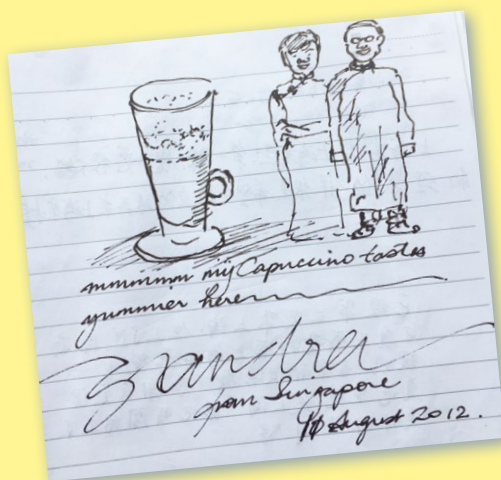 mmmmmm my Capuccino tastes
yummier here
Zandra
from Singapore
August 2012.